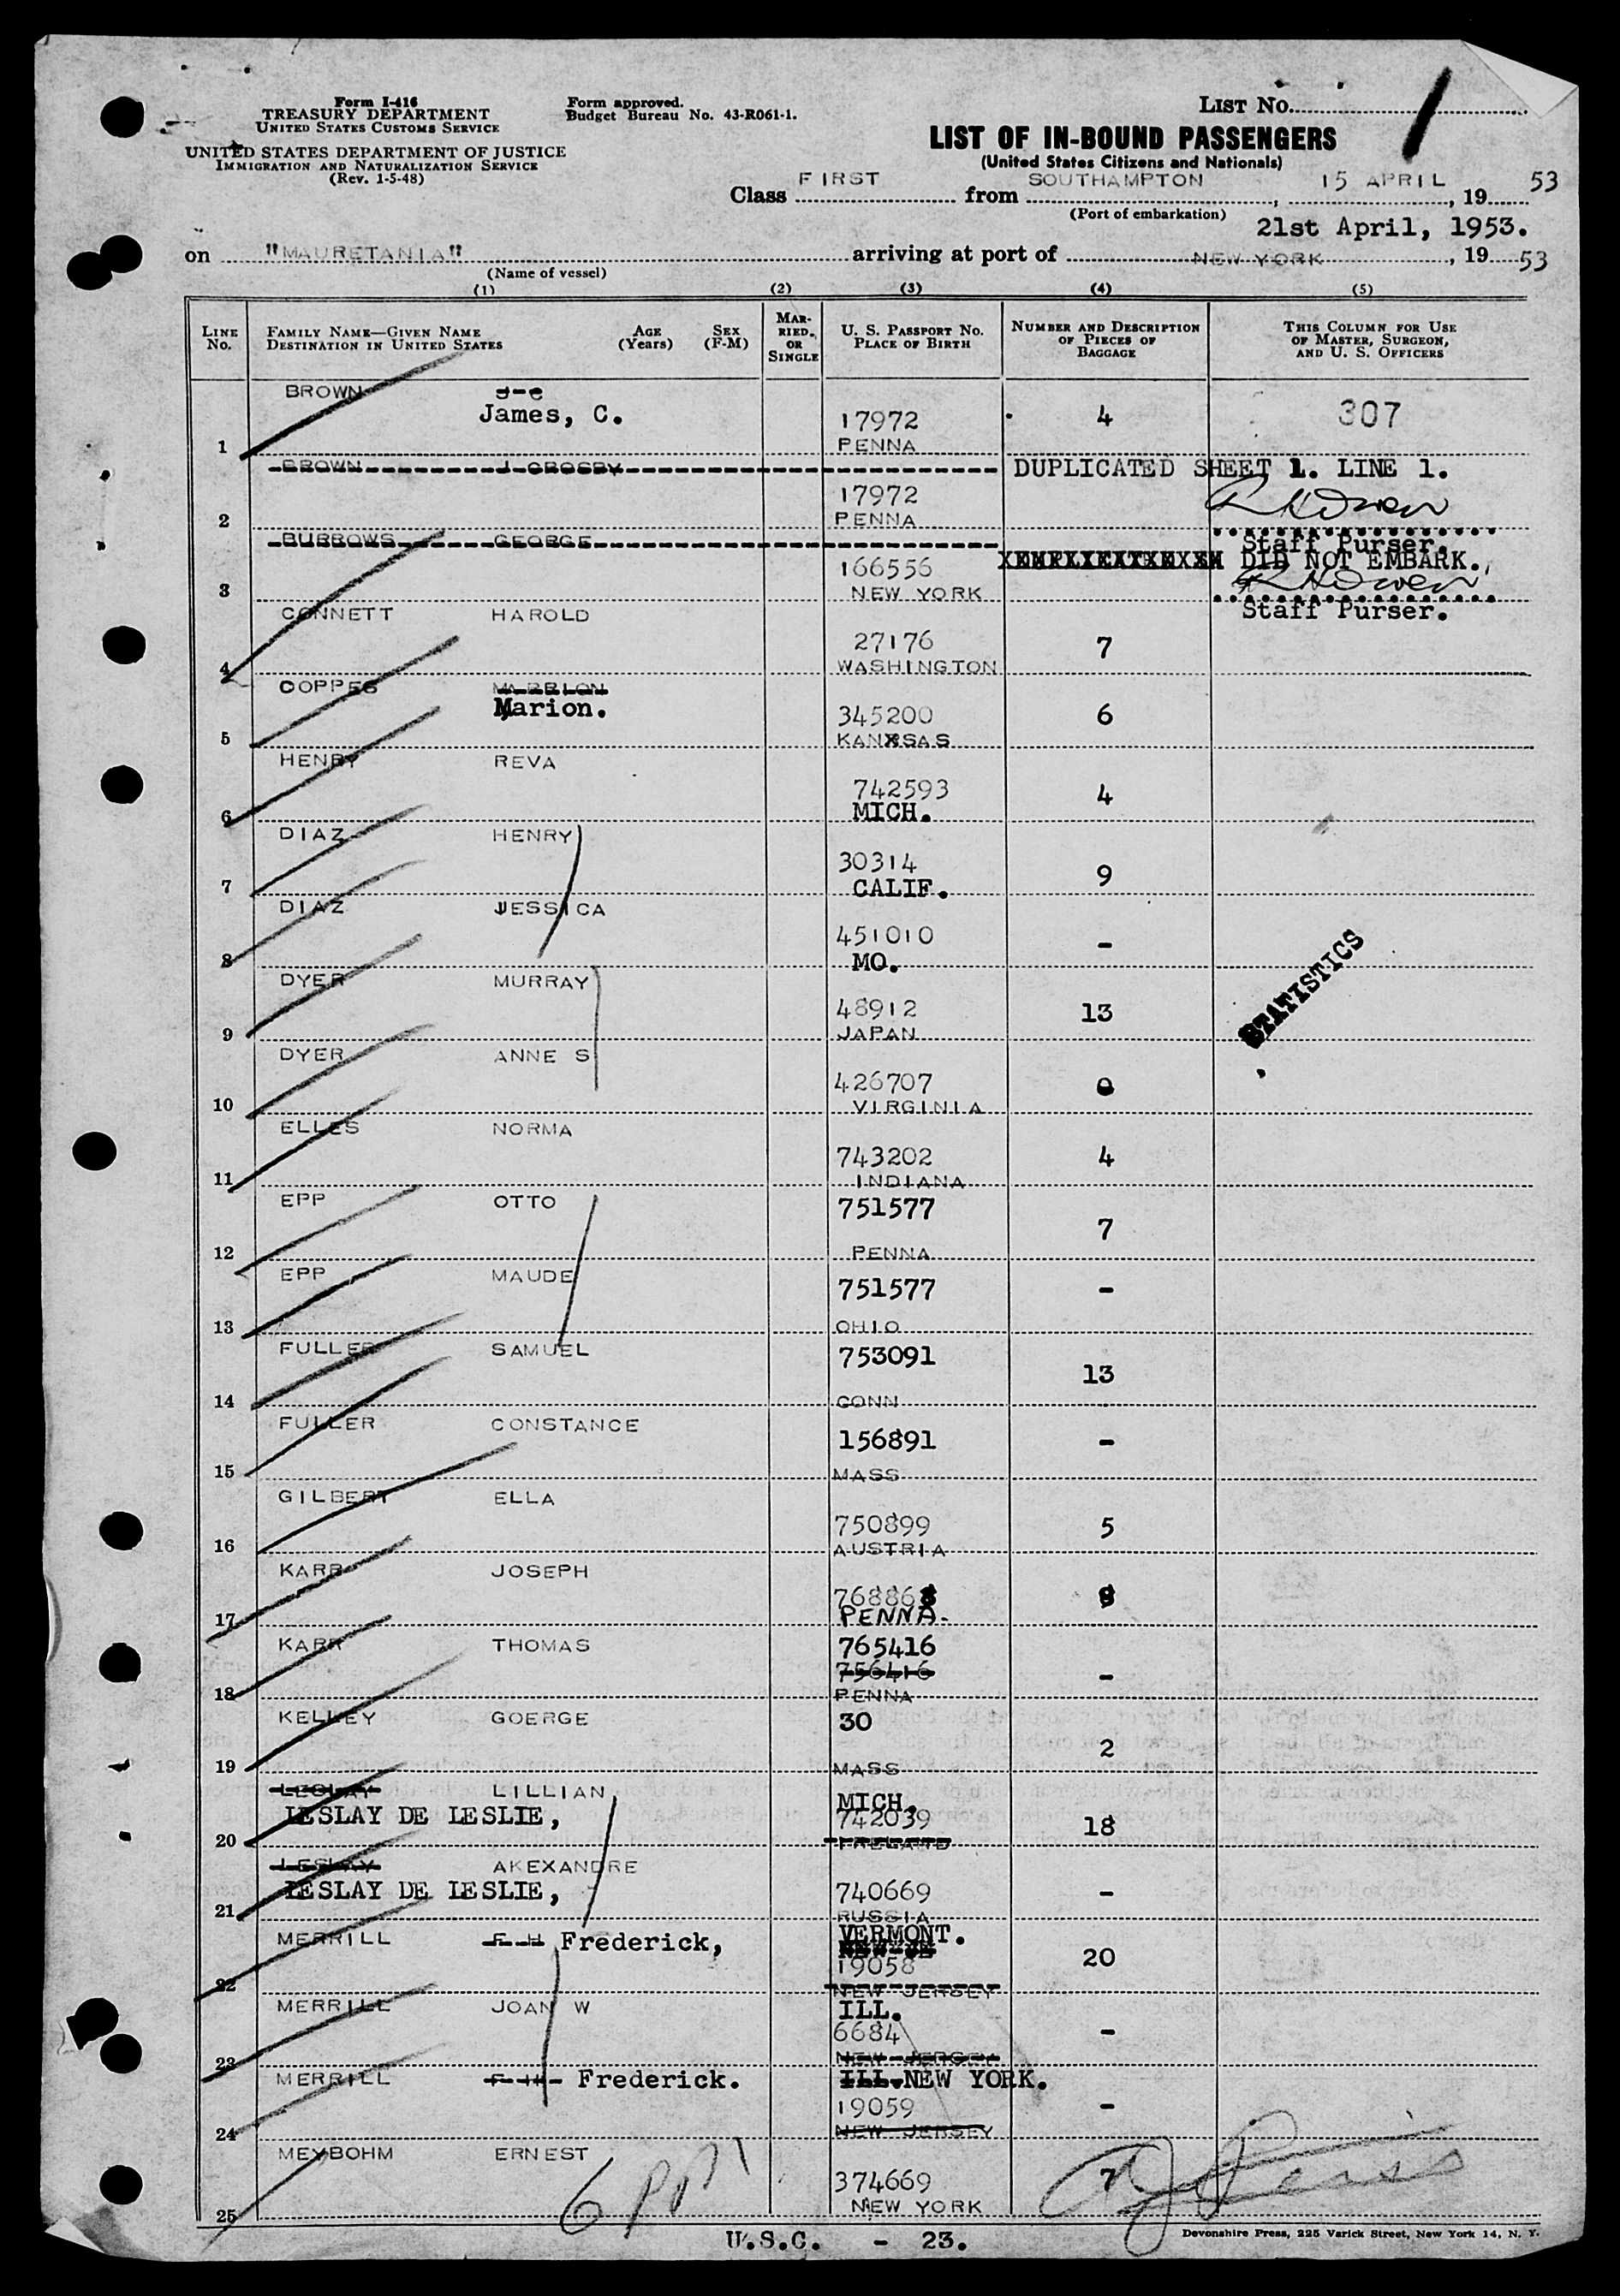 Form I-416
TREASURY DEPARTMENT
UNITED STATES CUSTOMS SERVICE
UNITED STATES DEPARTMENT OF JUSTICE
IMMIGRATION AND NATURALIZATION SERVICE
(Rev. 1-5-48)
Form approved.
Budget Bureau No. 43-R061-1.
LIST No. 1
LIST OF IN-BOUND PASSENGERS
(United States Citizens and Nationals)
Class FIRST from SOUTHAMPTON, 15 APRIL, 1953
(Port of embarkation)
21st April, 1953.
on "MAURETANIA" arriving at port of NEW YORK, 1953
(Name of vessel)
(1) (2) (3) (4) (5)
LINE No. FAMILY NAME—GIVEN NAME DESTINATION IN UNITED STATES AGE (Years) SEX (F-M) MARRIED OR SINGLE U. S. PASSPORT No. PLACE OF BIRTH NUMBER AND DESCRIPTION OF PIECES OF BAGGAGE THIS COLUMN FOR USE OF MASTER, SURGEON, AND U. S. OFFICERS
BROWN J C
James, C. 17972 4 307
1 PENNA
BROWN J CROSBY DUPLICATED SHEET 1. LINE 1.
17972
2 PENNA
BURROWS GEORGE Staff Purser.
166556 DID NOT EMBARK.
3 NEW YORK
Staff Purser.
CONNETT HAROLD
27176 7
4 WASHINGTON
COPPES MARRION
Marion. 345200 6
5 KANSAS
HENRY REVA
742593 4
6 MICH.
DIAZ HENRY
30314 9
7 CALIF.
DIAZ JESSICA
451010 -
8 MO.
STATISTICS
DYER MURRAY
48912 13
9 JAPAN
DYER ANNE S
426707
10 VIRGINIA
ELLES NORMA
743202 4
11 INDIANA
EPP OTTO 751577
7
12 PENNA
EPP MAUDE 751577 -
13 OHIO
FULLER SAMUEL 753091
13
14 CONN
FULLER CONSTANCE 156891 -
15 MASS
GILBERT ELLA
750899 5
16 AUSTRIA
KARR JOSEPH
768868
17 PENNA.
KARR THOMAS 765416
756416 -
18 PENNA
KELLEY GOERGE 30
2
19 MASS
LESLAY LILLIAN MICH.
LESLAY DE LESLIE, 742039 18
20 IRELAND
LESLAY AKEXANDRE
LESLAY DE LESLIE, 740669 -
21 RUSSIA
MERRILL F H Frederick, VERMONT.
19058 20
22 NEW JERSEY
MERRILL JOAN W ILL.
6684 -
23 NEW JERSEY
MERRILL Frederick. ILL. NEW YORK.
19059 -
24 NEW JERSEY
MEYBOHM ERNEST
374669 7
25 NEW YORK
U.S.C. - 23.
Devonshire Press, 225 Varick Street, New York 14, N. Y.